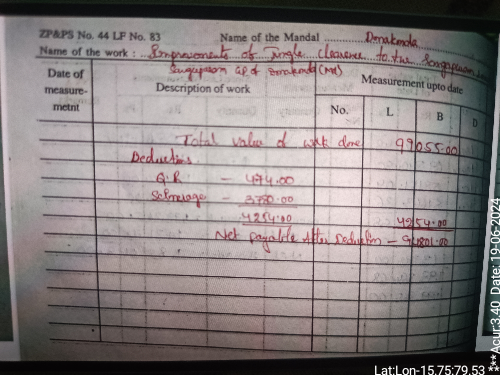 ZP&PS No. 44 LF No. 83 Name of the Mandal Donakonda
Name of the work : Improvements of Jungle Clearence to the
GP of Donakonda (M)
Date of measure-metnt Description of work Measurement upto date
No. L B D
Total value of work done 99055.00
Deductions
Q.R - 474.00
Seinerage - 3780.00
4254.00 4254.00
Net payable After Deduction - 94801.00
Lat:Lon-15.75:79.53
***Acur:3.40 Date: 19-06-2024